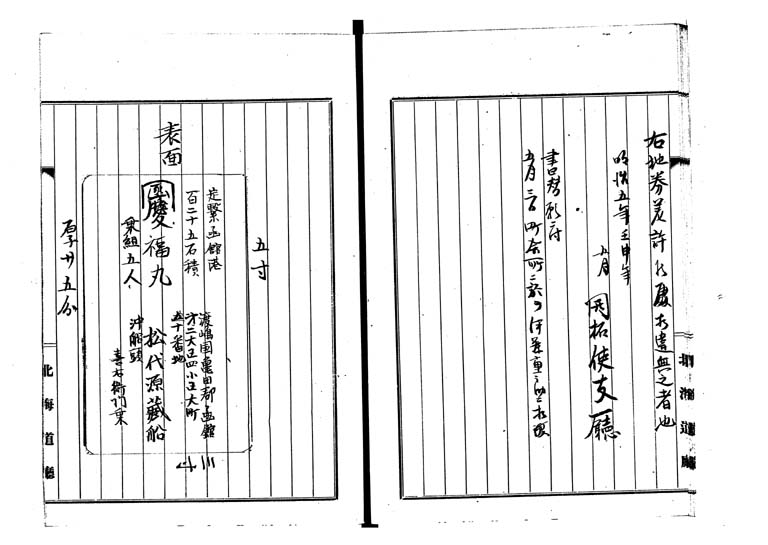 右地券差許候處相違無之者也
明治五年壬申年
五月
開拓使支廳
書四号願ニ付
五月三日町会所ニ於テ
北海道廳
表面
五寸
定繋函館港
百二十五石積
函
慶福丸
乗組五人
渡嶋国亀田郡函館
第二大区四小区大町
五十番地
松代源蔵船
沖船頭
喜右衛門乗
三寸
厚サ廿五分
北海道廳